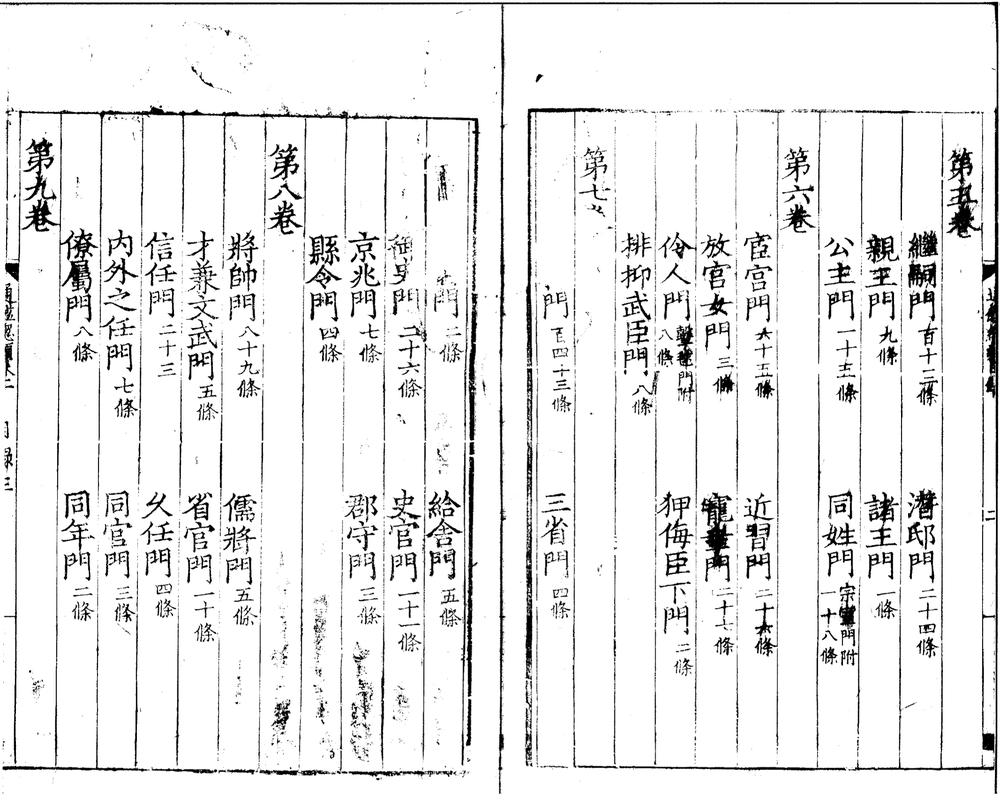 第五卷
繼嗣門 百十三條 潛邸門 二十四條
親王門 九條 諸王門 一條
公主門 一十三條 同姓門 宗室門附 一十八條
第六卷
宦官門 六十五條 近習門 二十六條
放宮女門 三條 寵 門 二十七條
伶人門 八條 狎侮臣下門 二條
排抑武臣門 八條
第七
門 百四十三條 三省門 四條
門 二條 給舍門 五條
御史門 二十六條 史官門 一十一條
京兆門 七條 郡守門 三條
縣令門 四條
第八卷
將帥門 八十九條 儒將門 五條
才兼文武門 五條 省官門 一十條
信任門 二十三 久任門 四條
內外之任門 七條 同官門 三條
僚屬門 八條 同年門 二條
第九卷
目錄三